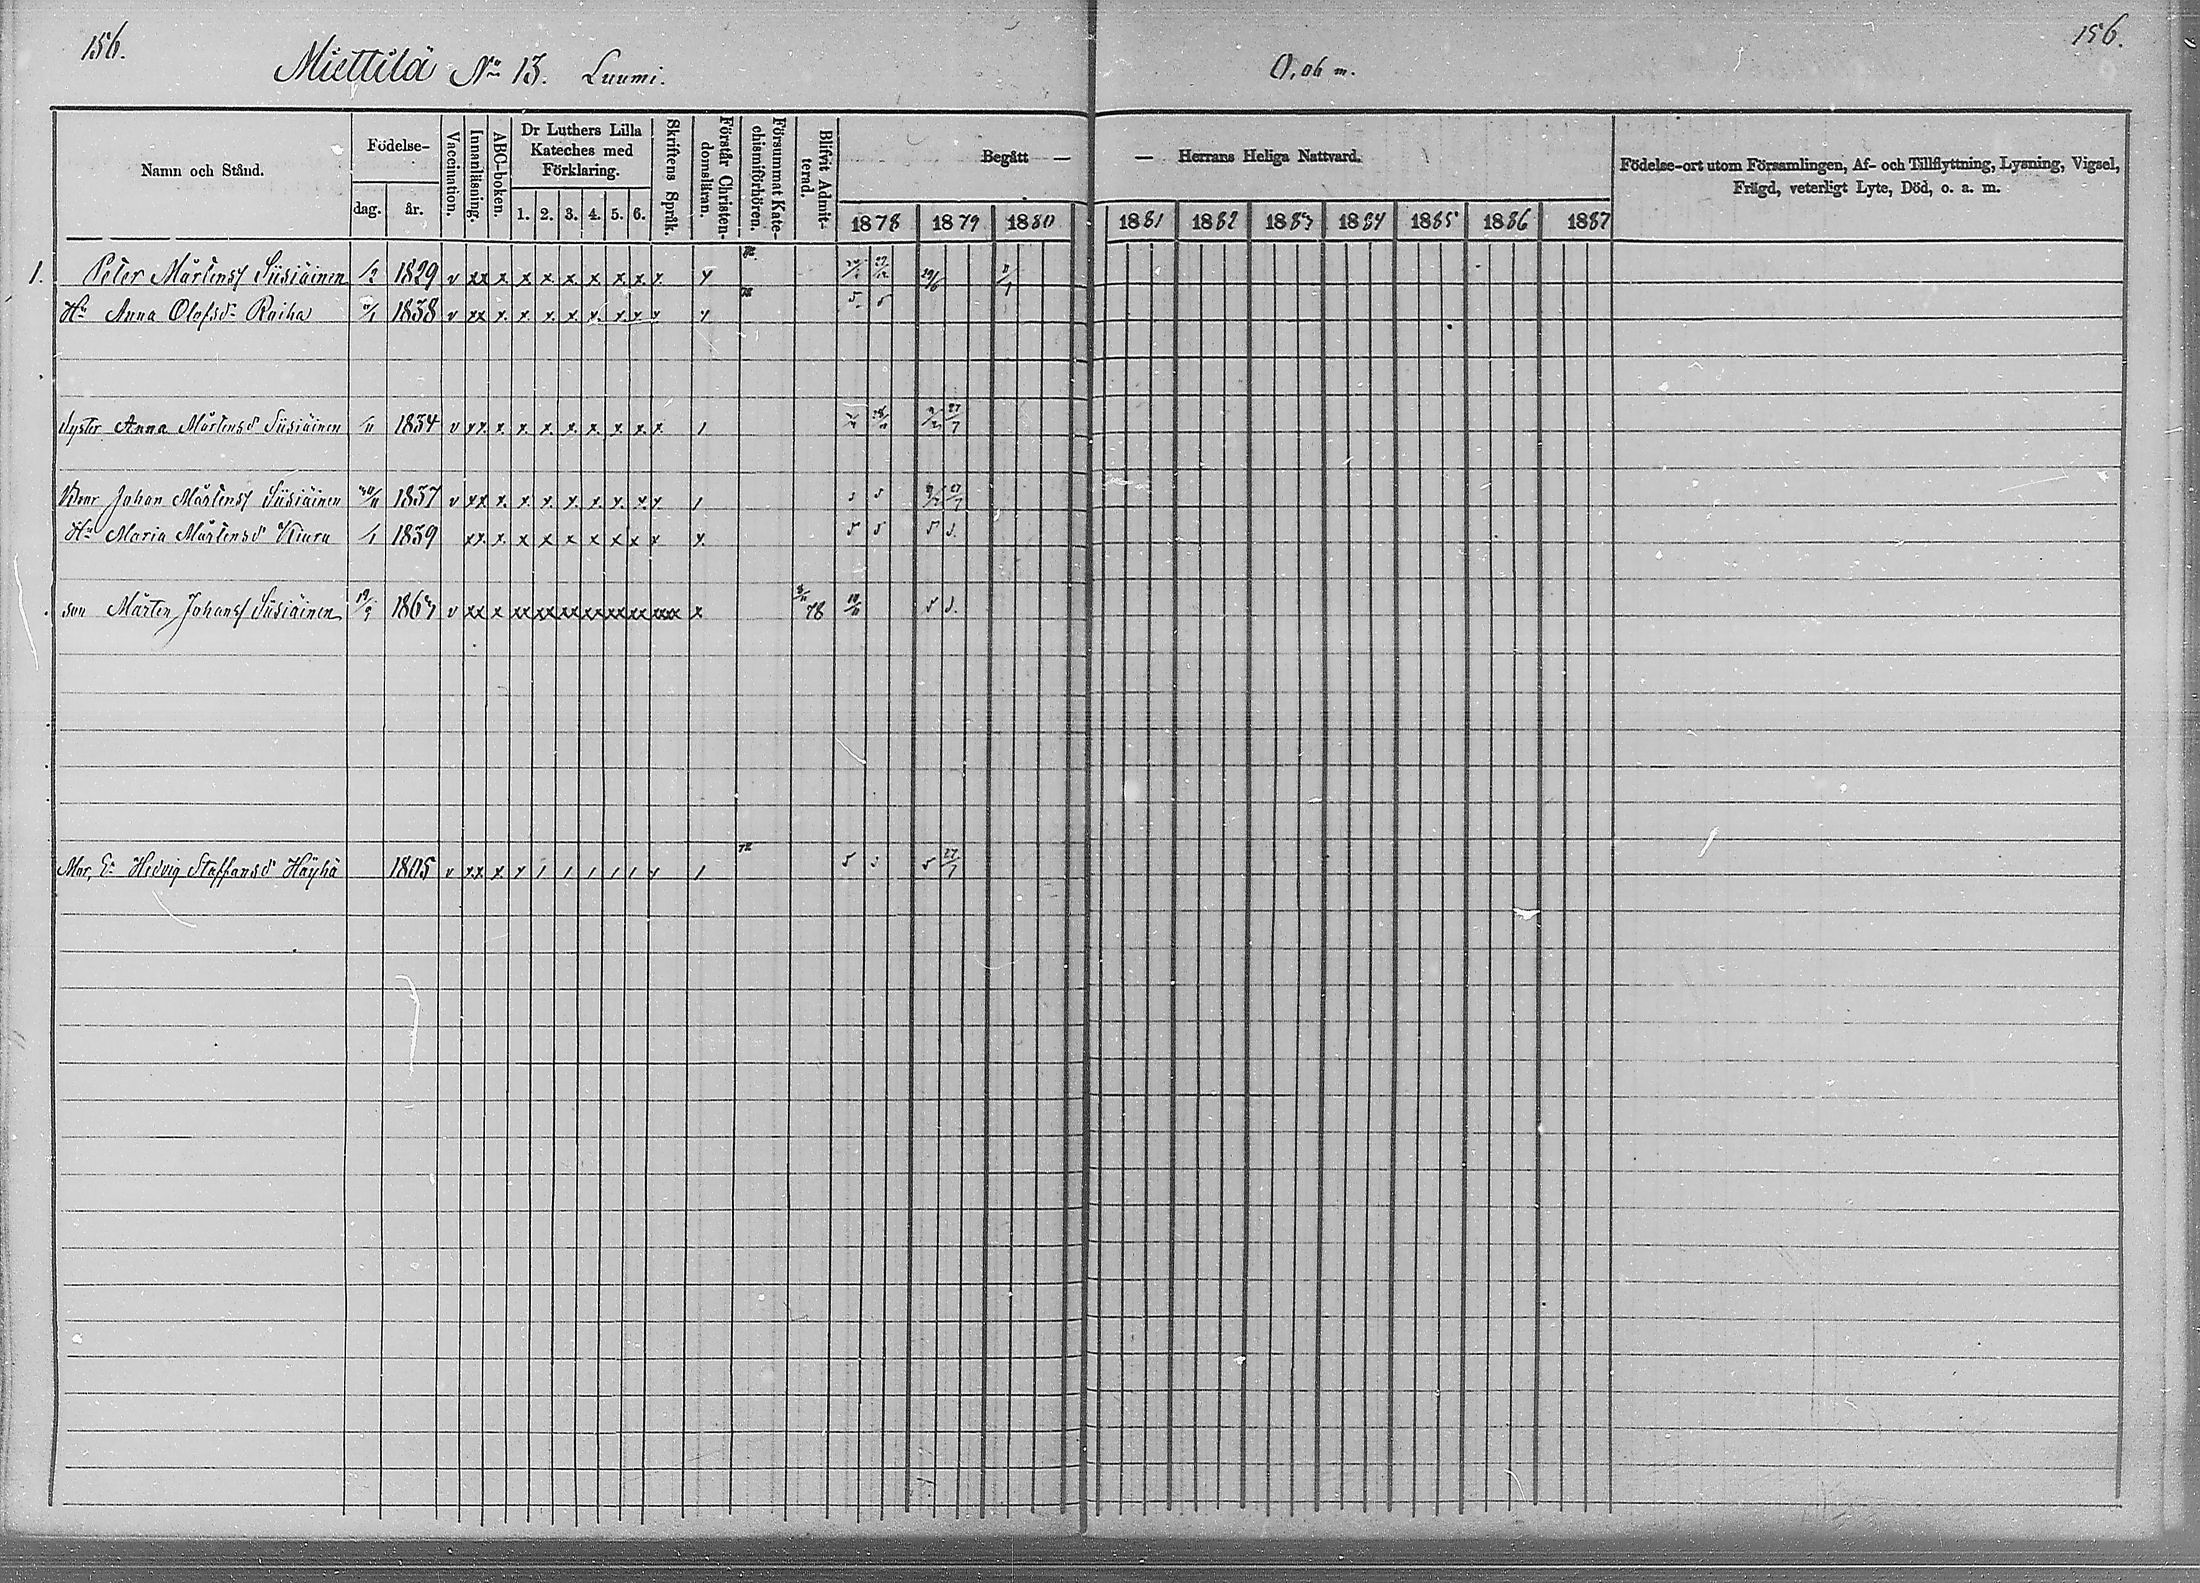 156.
156.
Miettilä No 13. Luumi.
0,06 m.
Namn och Stånd.
Födelse-
dag.
år.
Vaccination.
Innanläsning.
ABC-boken.
Dr Luthers Lilla
Kateches med
Förklaring.
1. 2. 3. 4. 5. 6.
Skriftens Språk.
Förstår Christen-
domsläran.
Försummat Kate-
chismiförhören.
Blifvit Admit-
terad.
Begått —
— Herrans Heliga Nattvard.
1878 1879 1880 1881 1882 1883 1884 1885 1886 1887
Födelse-ort utom Församlingen, Af- och Tillflyttning, Lysning, Vigsel,
Frägd, veterligt Lyte, Död, o. a. m.
1. Peter Mårtensf Siisiäinen /2 1829 v xx x. x x. x. x x. x. x. 29/6
Hu Anna Olofsdr 1838 v xx x. x. x. x. x. x. x 78
Syster Anna Mårtensd Siisiäinen /11 1834 v xx. x. x. x. x. x. x. x. x. 27/7
Bror Johan Mårtensf Siisiäinen 30/11 1837 v xx x. x x. x. x. x. x. 27/7
Hu Maria Mårtensd Kiuru /1 1839 xx. x. x x x x x x
son Mårten Johansf Siisiäinen 19/9 1863 v xx x xx xx xx xx xx xx xxx x 78
Mor, Ea Hedvig Staffansd Häyhä 1805 v xx x 27/7